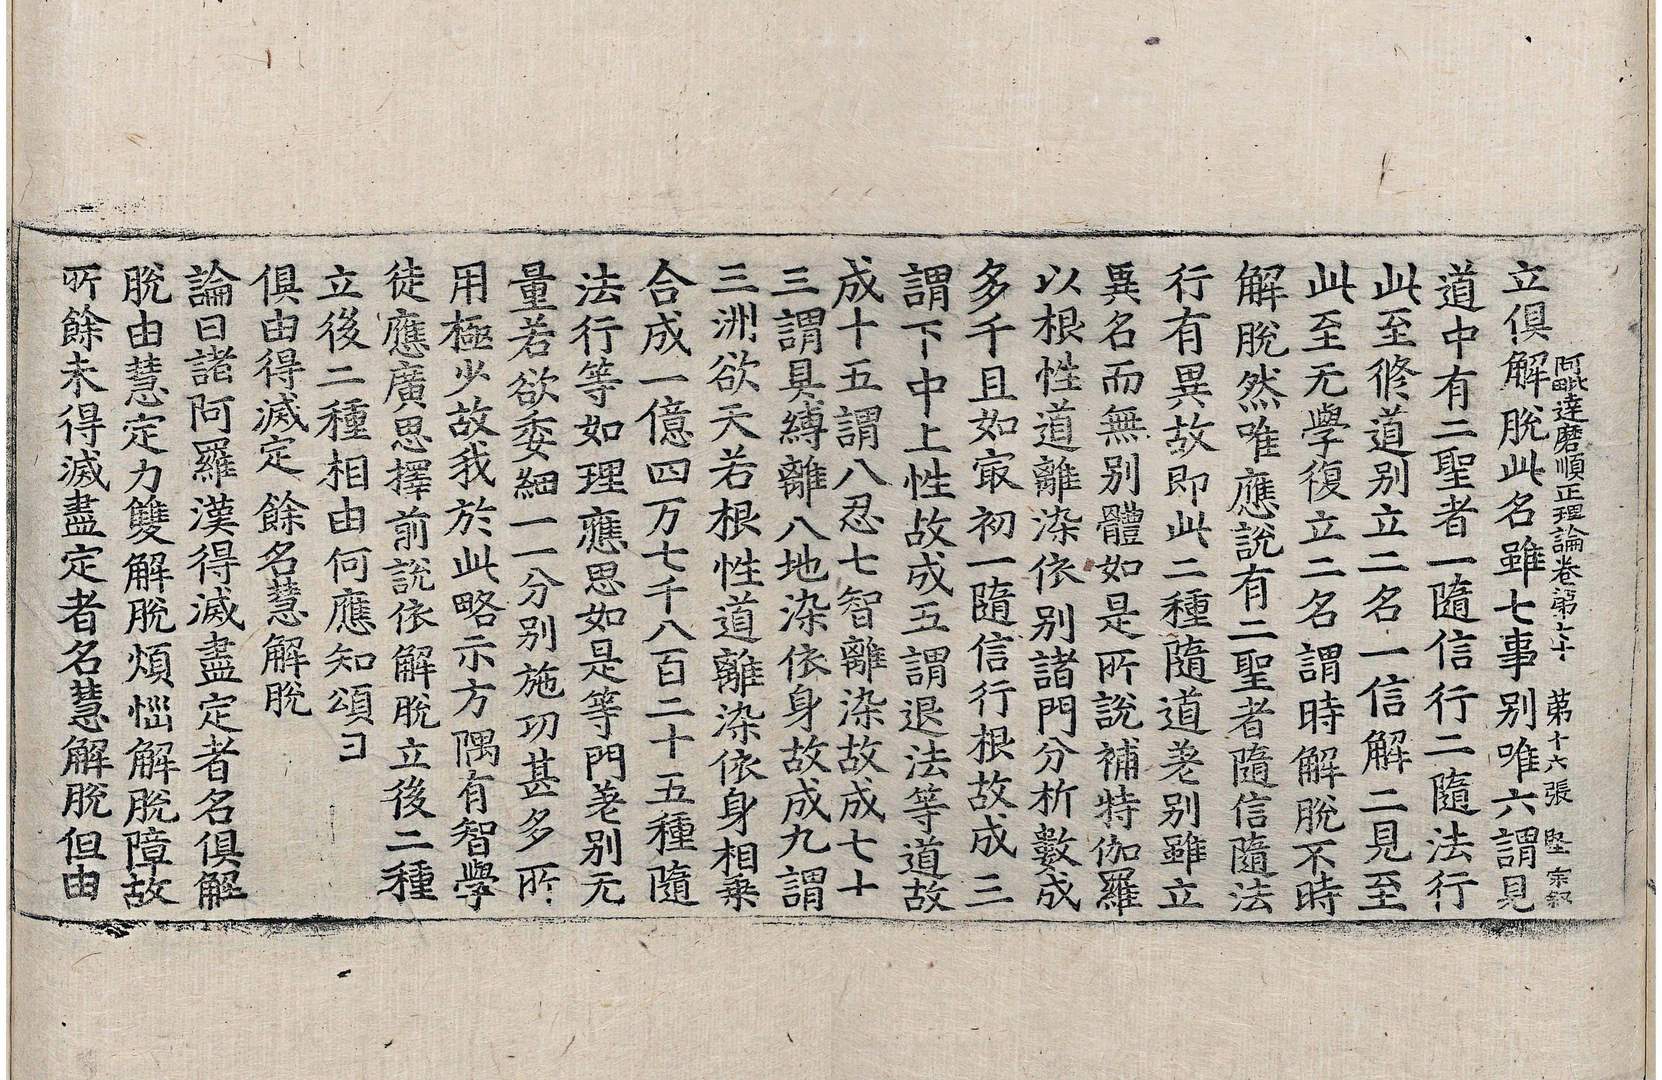 阿毗達磨順正理論卷第七十　第十六張　堅　宗叙
立俱解脫此名雖七事別唯六謂見
道中有二聖者一隨信行二隨法行
此至修道別立二名一信解二見至
此至无學復立二名謂時解脫不時
解脫然唯應說有二聖者隨信隨法
行有異故即此二種隨道差別雖立
異名而無別體如是所說補特伽羅
以根性道離染依別諸門分析數成
多千且如冣初一隨信行根故成三
謂下中上性故成五謂退法等道故
成十五謂八忍七智離染故成七十
三謂具縛離八地染依身故成九謂
三洲欲天若根性道離染依身相乘
合成一億四万七千八百二十五種隨
法行等如理應思如是等門差別无
量若欲委細一一分別施功甚多所
用極少故我於此略示方隅有智學
徒應廣思擇前說依解脫立後二種
立後二種相由何應知頌曰
俱由得滅定　餘名慧解脫
論曰諸阿羅漢得滅盡定者名俱解
脫由慧定力雙解脫煩惱解脫障故
所餘未得滅盡定者名慧解脫但由